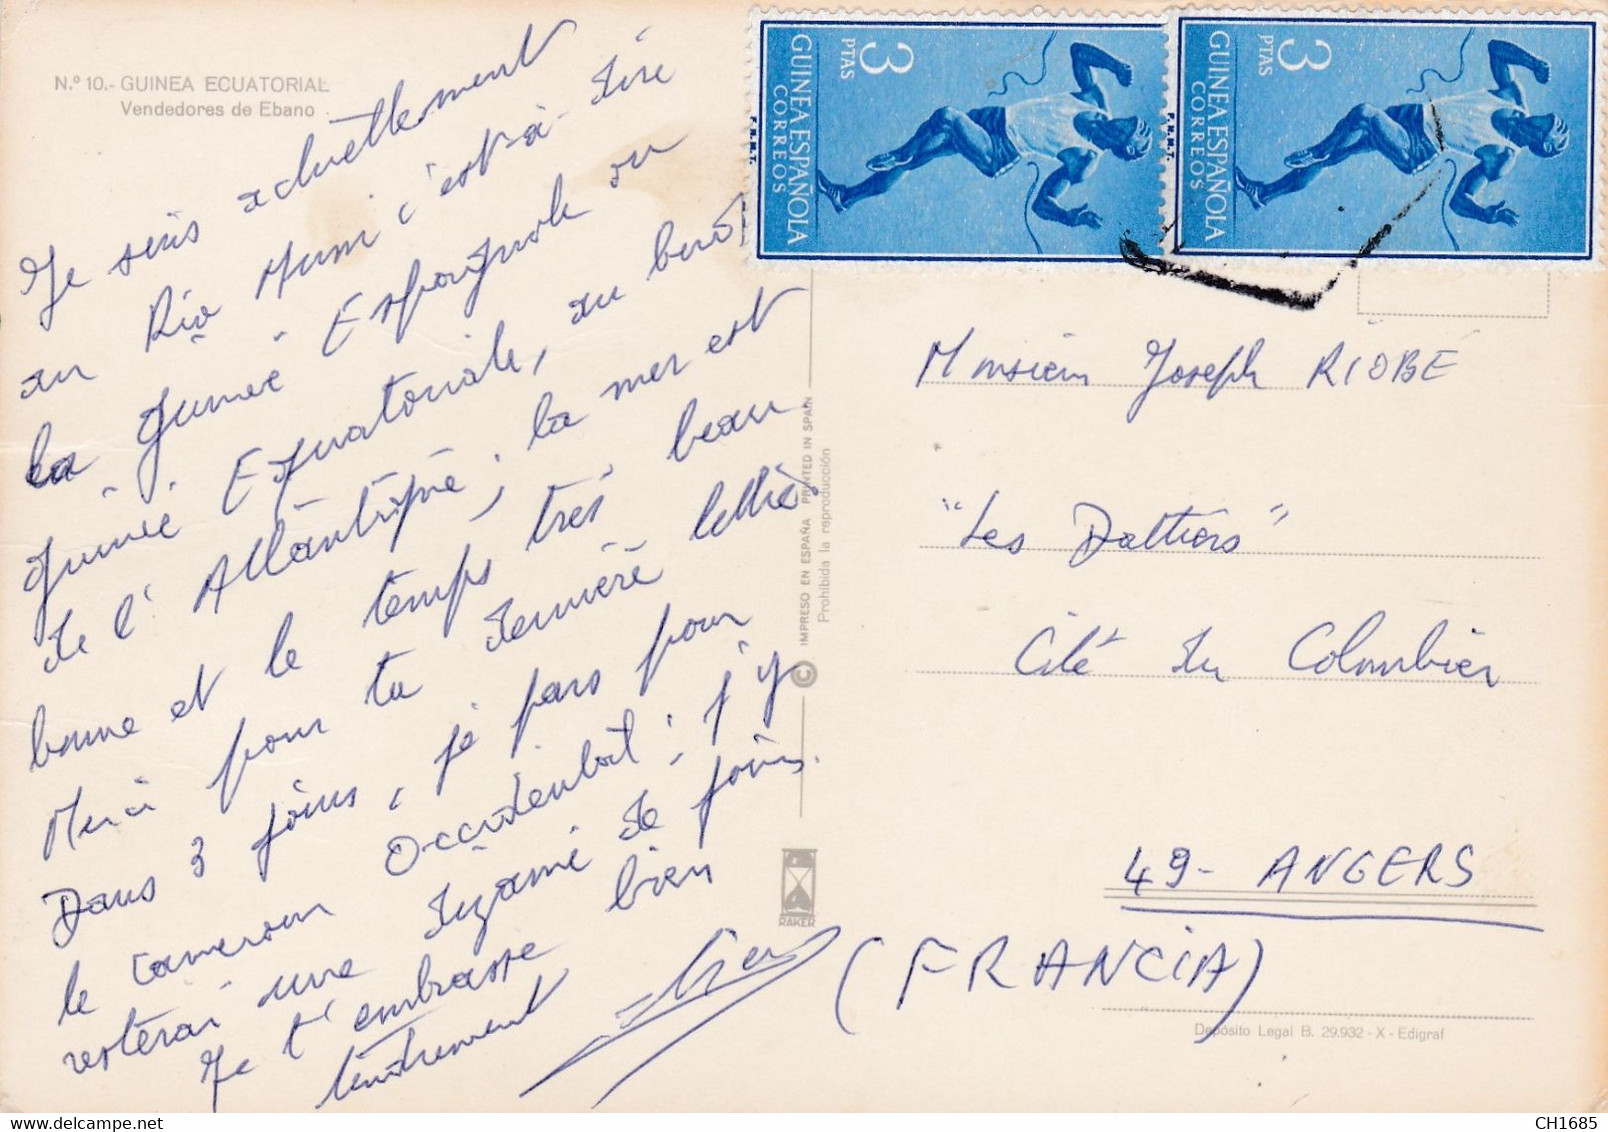 N.º 10.- GUINEA ECUATORIAL
Vendedores de Ebano
Je suis actuellement
au Rio Muni c'est-à-dire
la Guinée Espagnole ou
Guinée Equatoriale, au bord
de l'Atlantique ; la mer est
bonne et le temps très beau
Merci pour ta dernière lettre
Dans 3 jours, je pars pour
le Cameroun Occidental ; j'y
resterai une dizaine de jours.
Je t'embrasse bien
tendrement
3 PTAS
GUINEA ESPAÑOLA
CORREOS
F.N.M.T.
3 PTAS
GUINEA ESPAÑOLA
CORREOS
F.N.M.T.
© IMPRESO EN ESPAÑA PRINTED IN SPAIN
Prohibida la reproducción
RAKER
Monsieur Joseph RIOBÉ
"Les Dattiers"
Cité du Colombier
49- ANGERS
(FRANCIA)
Depósito Legal B. 29.932 - X - Edigraf
CH1685